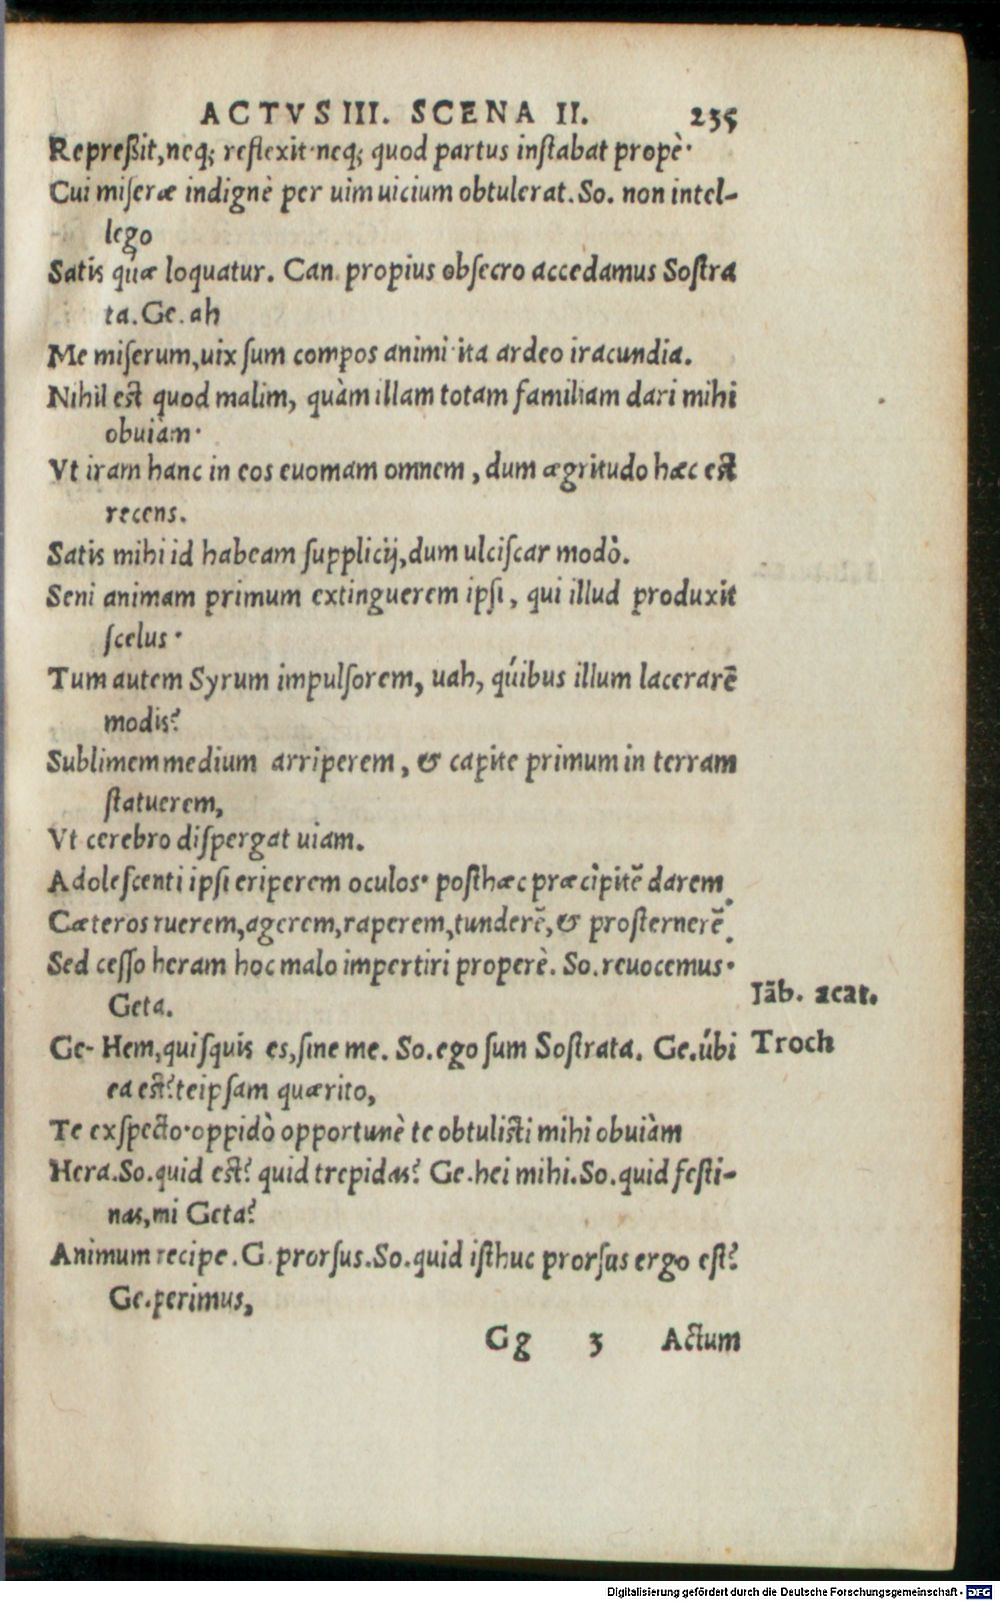 ACTVS III. SCENA II. 235
Repreßit,neq; reflexit·neq; quod partus inſtabat propè·
Cui miſeræ indignè per uim uicium obtulerat. So. non intel-
lego
Satis quæ loquatur. Can. propius obſecro accedamus Soſtra
ta. Ge. ah
Me miſerum,uix ſum compos animi·ita ardeo iracundia.
Nihil est quod malim, quàm illam totam familiam dari mihi
obuiàm·
Vt iram hanc in eos euomam omnem, dum ægritudo hæc est
recens.
Satis mihi id habeam ſupplicij,dum ulciſcar modò.
Seni animam primum extinguerem ipſi, qui illud produxit
ſcelus·
Tum autem Syrum impulſorem, uah, qúibus illum lacerarē
modis?
Sublimem medium arriperem, & capite primum in terram
ſtatuerem,
Vt cerebro diſpergat uiam.
Adoleſcenti ipſi eriperem oculos· poſthæc præcipitē darem.
Cæteros ruerem,agerem,raperem,tunderē,& proſternerē.
Sed ceſſo heram hoc malo impertiri properè. So. reuocemus·
Geta.
Iāb. acat.
Ge- Hem,quiſquis es,ſine me. So. ego ſum Soſtrata. Ge. úbi
Troch
ea est? teipſam quærito,
Te exſpecto·oppidò opportunè te obtulisti mihi obuiàm
Hera. So. quid est? quid trepidas? Ge. hei mihi. So. quid feſti-
nas,mi Geta?
Animum recipe. G. prorſus. So. quid iſthuc prorſus ergo eſt?
Ge. perimus,
Gg 3 Actum
Digitalisierung gefördert durch die Deutsche Forschungsgemeinschaft - DFG